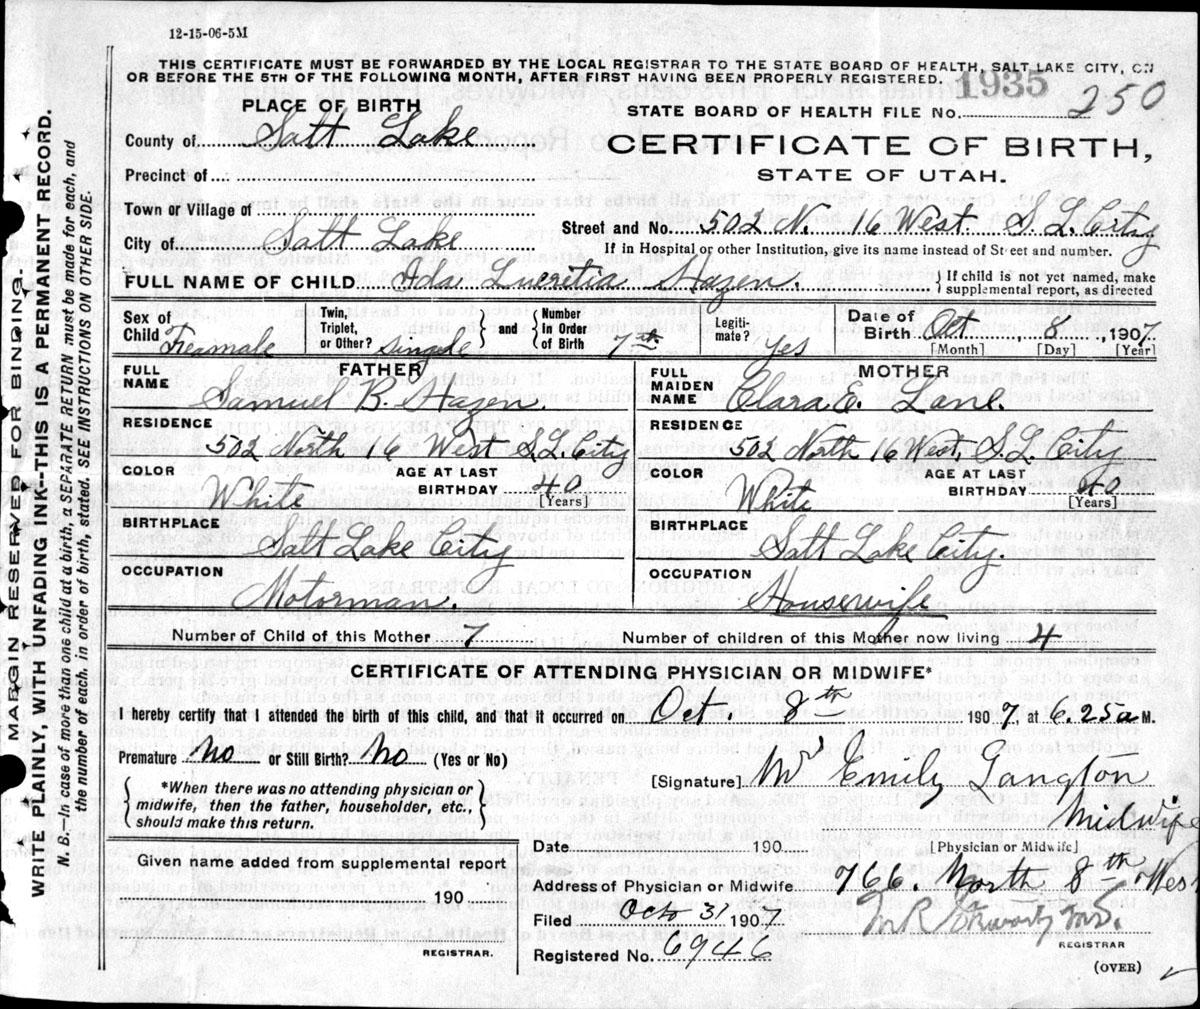 12-15-06-5M
THIS CERTIFICATE MUST BE FORWARDED BY THE LOCAL REGISTRAR TO THE STATE BOARD OF HEALTH, SALT LAKE CITY, ON
OR BEFORE THE 5TH OF THE FOLLOWING MONTH, AFTER FIRST HAVING BEEN PROPERLY REGISTERED.
1935
PLACE OF BIRTH
STATE BOARD OF HEALTH FILE No. 250
County of Salt Lake
CERTIFICATE OF BIRTH,
STATE OF UTAH.
Precinct of
Town or Village of
Street and No. 502 N. 16 West S. L. City
City of Salt Lake
If in Hospital or other Institution, give its name instead of Street and number.
FULL NAME OF CHILD Ada Lucretia Hazen. } If child is not yet named, make supplemental report, as directed
Sex of Child Freamale
Twin, Triplet, or Other? single } and { Number in Order of Birth 7th
Legitimate? yes
Date of Birth Oct. 8, 1907
[Month] [Day] [Year]
FATHER
FULL NAME Samuel B. Hazen.
RESIDENCE 502 North 16 West S.L. City
COLOR White
AGE AT LAST BIRTHDAY 40 [Years]
BIRTHPLACE Salt Lake City
OCCUPATION Motorman.
MOTHER
FULL MAIDEN NAME Clara E. Lane.
RESIDENCE 502 North 16 West, S.L. City
COLOR White
AGE AT LAST BIRTHDAY 40 [Years]
BIRTHPLACE Salt Lake City.
OCCUPATION Housewife
Number of Child of this Mother 7
Number of children of this Mother now living 4
CERTIFICATE OF ATTENDING PHYSICIAN OR MIDWIFE*
I hereby certify that I attended the birth of this child, and that it occurred on Oct. 8th 1907, at 6.25 a M.
Premature No or Still Birth? No (Yes or No)
*When there was no attending physician or
midwife, then the father, householder, etc.,
should make this return.
[Signature] Mrs Emily Langton
Midwife
[Physician or Midwife]
Date 190
Given name added from supplemental report
190
REGISTRAR.
Address of Physician or Midwife 766. North 8th West
Filed Octo 31 1907
REGISTRAR
Registered No. 6946
(OVER)
MARGIN RESERVED FOR BINDING.
WRITE PLAINLY, WITH UNFADING INK-THIS IS A PERMANENT RECORD.
N. B.—In case of more than one child at a birth, a SEPARATE RETURN must be made for each, and
the number of each, in order of birth, stated. SEE INSTRUCTIONS ON OTHER SIDE.